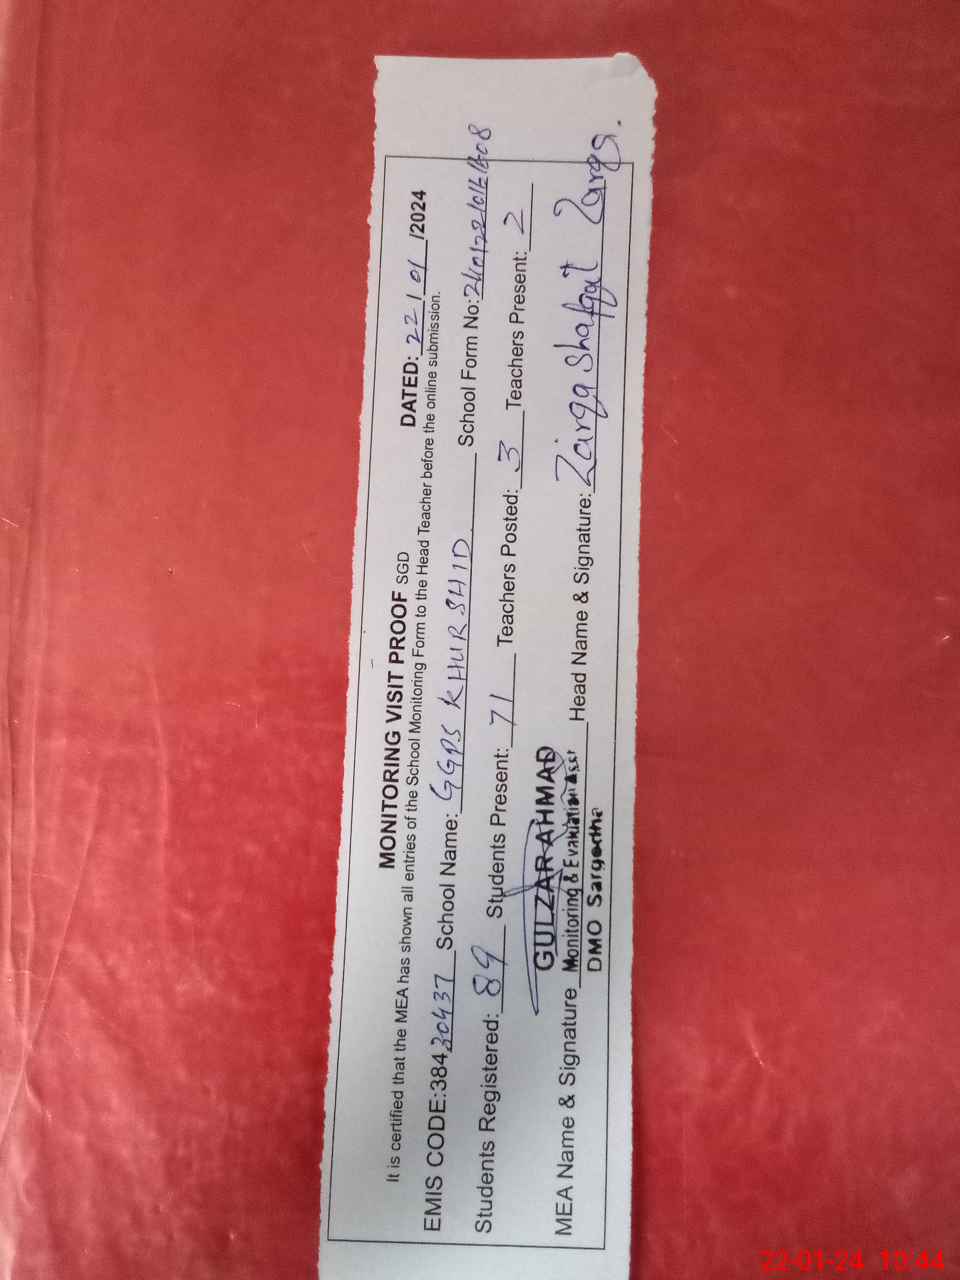 MONITORING VISIT PROOF SGD DATED: 22/01/2024
It is certified that the MEA has shown all entries of the School Monitoring Form to the Head Teacher before the online submission.
EMIS CODE:38430437 School Name: GGPS KHURSHID School Form No:
Students Registered: 89 Students Present: 71 Teachers Posted: 3 Teachers Present: 2
GULZAR AHMAD
MEA Name & Signature Monitoring & Evaluation Asst Head Name & Signature: Zarqa Shafqat Zarqa.
DMO Sargodha
22-01-24 10:44